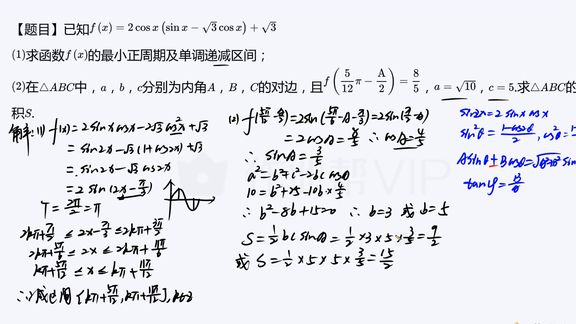 【题目】已知f(x)=2cosx(sinx−√3cosx)+√3
(1)求函数f(x)的最小正周期及单调递减区间；
(2)在△ABC中，a，b，c分别为内角A，B，C的对边，且f(5/12π−A/2)=8/5，a=√10，c=5.求△ABC的
积S.
解:(1) f(x)=2sinxcosx−2√3cos²x+√3
=sin2x−√3(1+cos2x)+√3
=sin2x−√3cos2x
=2sin(2x−π/3)
T=2π/2=π
2kπ+π/2≤2x−π/3≤2kπ+3π/2
2kπ+5π/6≤2x≤2kπ+11π/6
kπ+5π/12≤x≤kπ+11π/12
[kπ+5π/12,kπ+11π/12],k∈Z
=2cosA=8/5 ∴cosA=4/5
∴sinA=3/5
a²=b²+c²−2bccosA
10=b²+25−10b×4/5
∴b²−8b+15=0 ∴b=3或b=5
S=1/2bcsinA=1/2×3×5×3/5=9/2
或S=1/2×5×5×3/5=15/2
sin2x=2sinxcosx
tanφ=
VIP